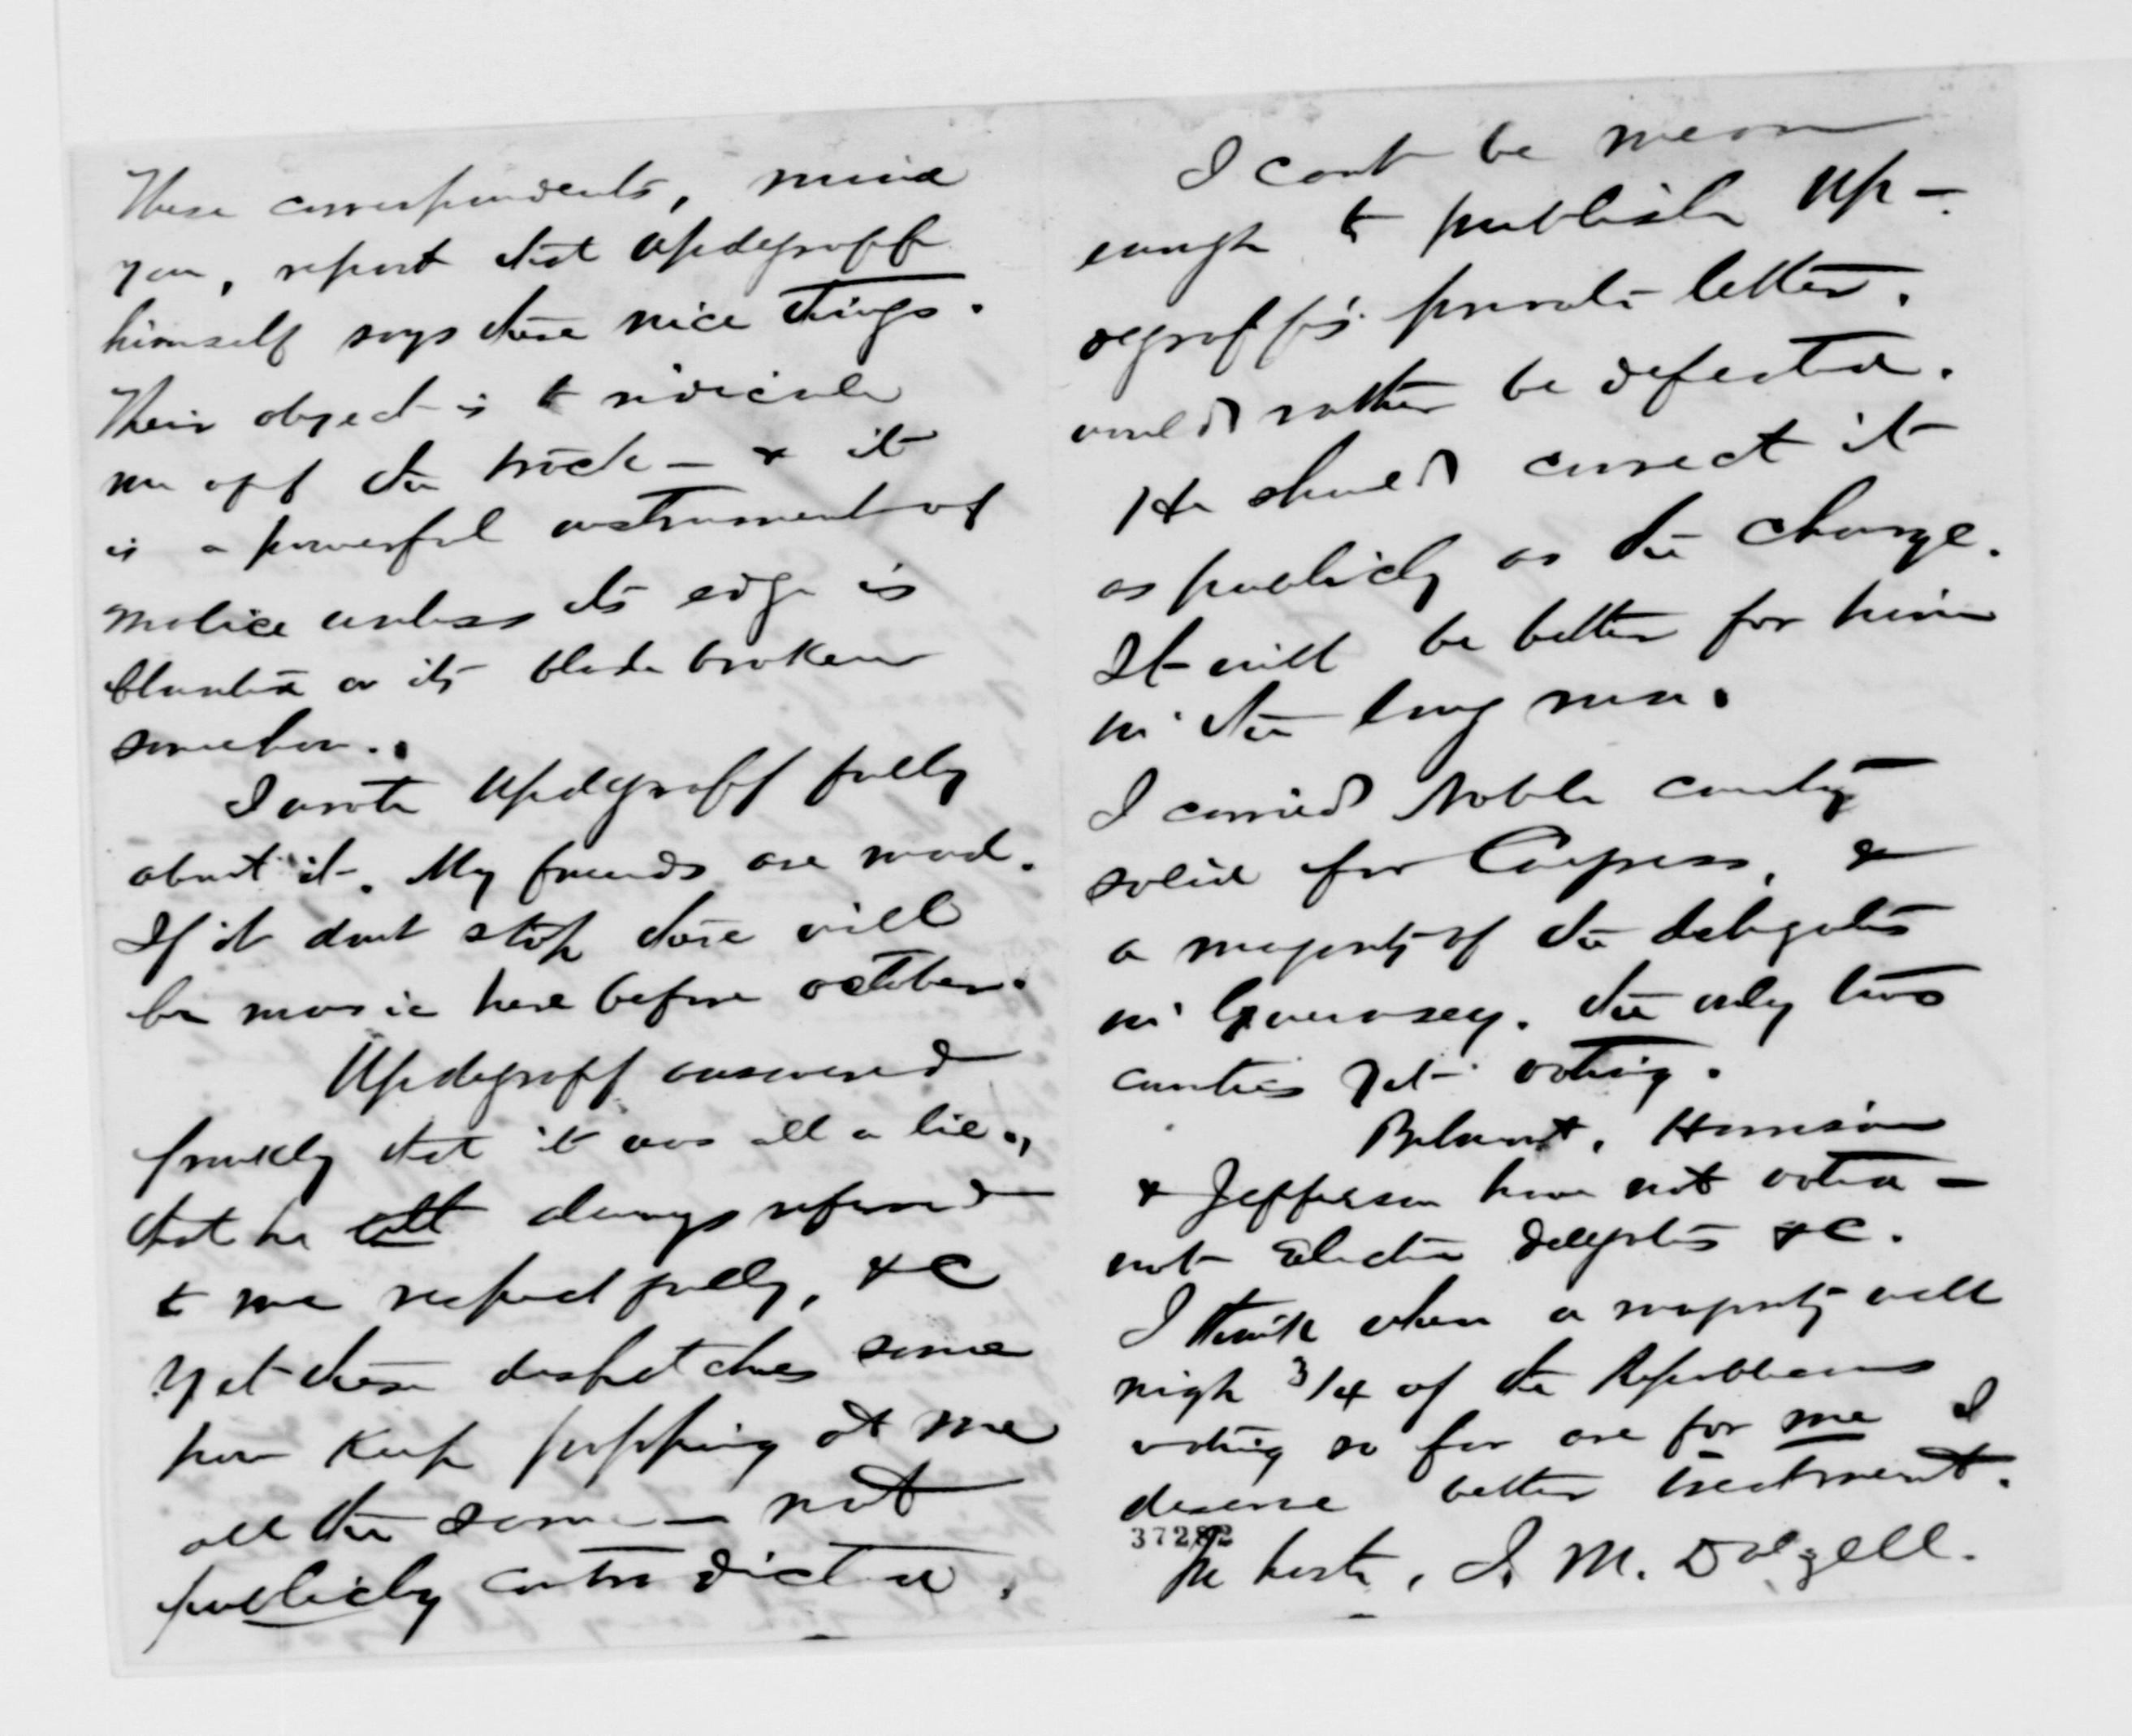 These correspondents, mind
you, report that Updegraff
himself says these nice things.
Their object is to ridicule
me off the track — & it
is a powerful instrument of
malice unless its edge is
blunted or its blade broken
somehow.
I wrote Updegraff fully
about it. My friends are mad.
If it dont stop there will
be music here before october.
Updegraff answered
frankly that it was all a lie,
that he all always referred
to me respectfully, &c
Yet these despatches some
how keep popping at me
all the same — not
publicly contradicted.
I cant be mean
enough to publish Up-
degraff's private letter.
would rather be defeated.
He should correct it
as publicly as the charge.
It will be better for him
in the long run.
I carried Noble county
solid for Congress, &
a majority of the delegates
in Guernsey. the only two
counties yet voting.
Belmont, Harrison
& Jefferson have not voted —
not Elected delegates &c.
I think when a majority well
nigh 3/4 of the Republicans
voting so far are for me I
deserve better treatment.
37282
In haste, J. M. Dalzell.